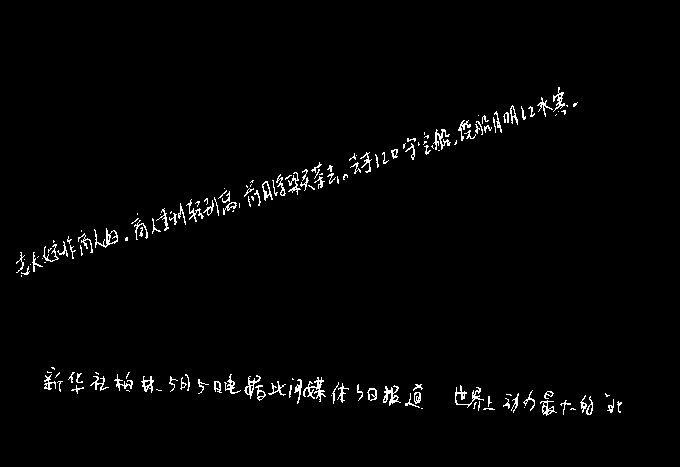 老大嫁作商人妇。商人重利轻别离，前月浮梁买茶去。去来江口守空船，绕船月明江水寒。
新华社柏林5月5日电据此间媒体5日报道 世界上动力最大的